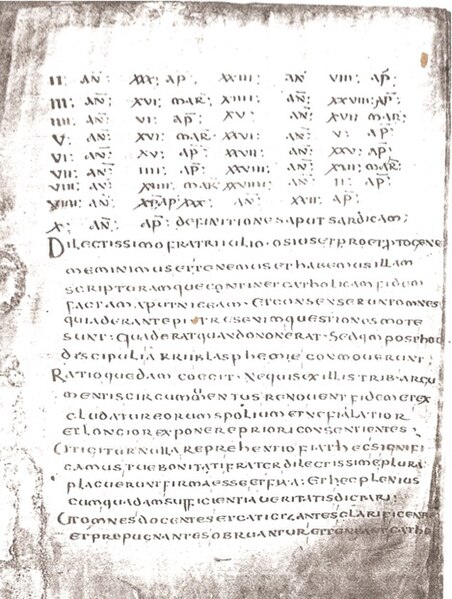 II: AN̄: XXX: AP̄: XXIII: AN̄ VIII: AP̄:
III: AN̄: XVI: MAR̄: XIIII: AN̄: XXVIII: AP̄:
IIII: AN̄: VI: AP̄: XV: AN̄: XVII MAR̄:
V: AN̄: XVI: MAR̄ XXVI: AN̄: V: AP̄:
VI: AN̄: XV: AP̄: XXVII: AN̄: XXV: AP̄:
VII: AN̄: IIII: AP̄: XXVIII: AN̄: XVII: MAR̄:
VIIII: AN̄: XIIII: MAR̄: XXVIIII: AN̄: II: AP̄:
AP̄: XXX: AN: XXII: AP̄:
X: AN̄: AP̄: DEFINITIONES APUT SARDICAM;
DILECTISSIMO FRATRI IULIO OSIUS ET PROTOGENE
MEMINIMUS ET TENEMUS ET HABEMUS ILLAM
SCRIPTURAM QUE CONTINET CATHOLICAM FIDEM
FACTAM APUT NICEAM ET CONSENSERUNT OMNES
QUI ADERANT EPI TRES ENIM QUESTIONES MOTE
SUNT: QUAD ERAT QUANDO NON ERAT SED QM POST HOC
DISCIPULI ARRII BLASPHEMIE CONMOUERUNT
RATIO QUEDAM COEGIT NE QUIS EX ILLIS TRIB ARGU
MENTIS CIRCUMUENTUS RENOUENT FIDEM ET EX
CLUDATUR EORUM SPOLIUM ET NE FIAT LATIOR
ET LONGIOR EXPONERE PRIORI CONSENTIENTES
UT IGITUR NULLA REPREHENTIO FIAT HEC SIGNIFI
CAMUS TUE BONITATI FRATER DILECTISSIME PLURA
PLACUERUNT FIRMA ESSE ET FIXA: ET HEC PLENIUS
CUM QUADAM SUFFICIENTIA UERITATIS DICTARI
UT OMNES DOCENTES ET CATICIZANTES CLARIFICENTUR
ET REPUGNANTES OBRUANTUR ET TENEANT CATHO